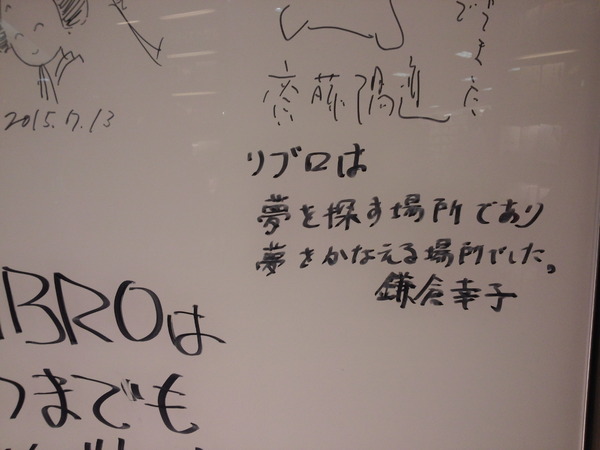 でてきた
2015.7.13
齋藤陽道
リブロは
夢を探す場所であり
夢をかなえる場所でした。
鎌倉幸子
BROは
つまでも